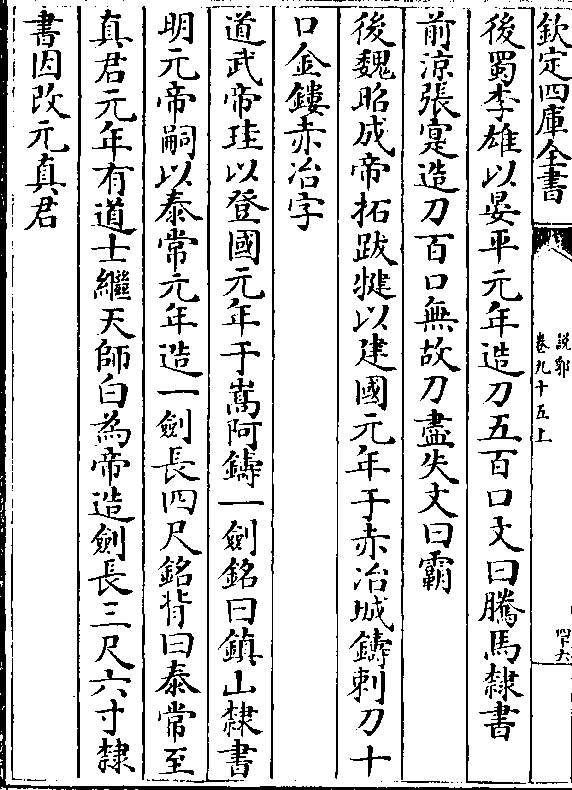 欽定四庫全書
說郛
卷九十五上
後蜀李雄以晏平元年造刀五百口文曰騰馬隸書
前涼張寔造刀百口無故刀盡失文曰霸
後魏昭成帝拓跋犍以建國元年于赤冶城鑄刺刀十
口金鏤赤冶字
道武帝珪以登國元年于嵩阿鑄一劍銘曰鎮山隸書
明元帝嗣以泰常元年造一劍長四尺銘背曰泰常至
真君元年有道士繼天師白為帝造劍長三尺六寸隸
書因改元真君